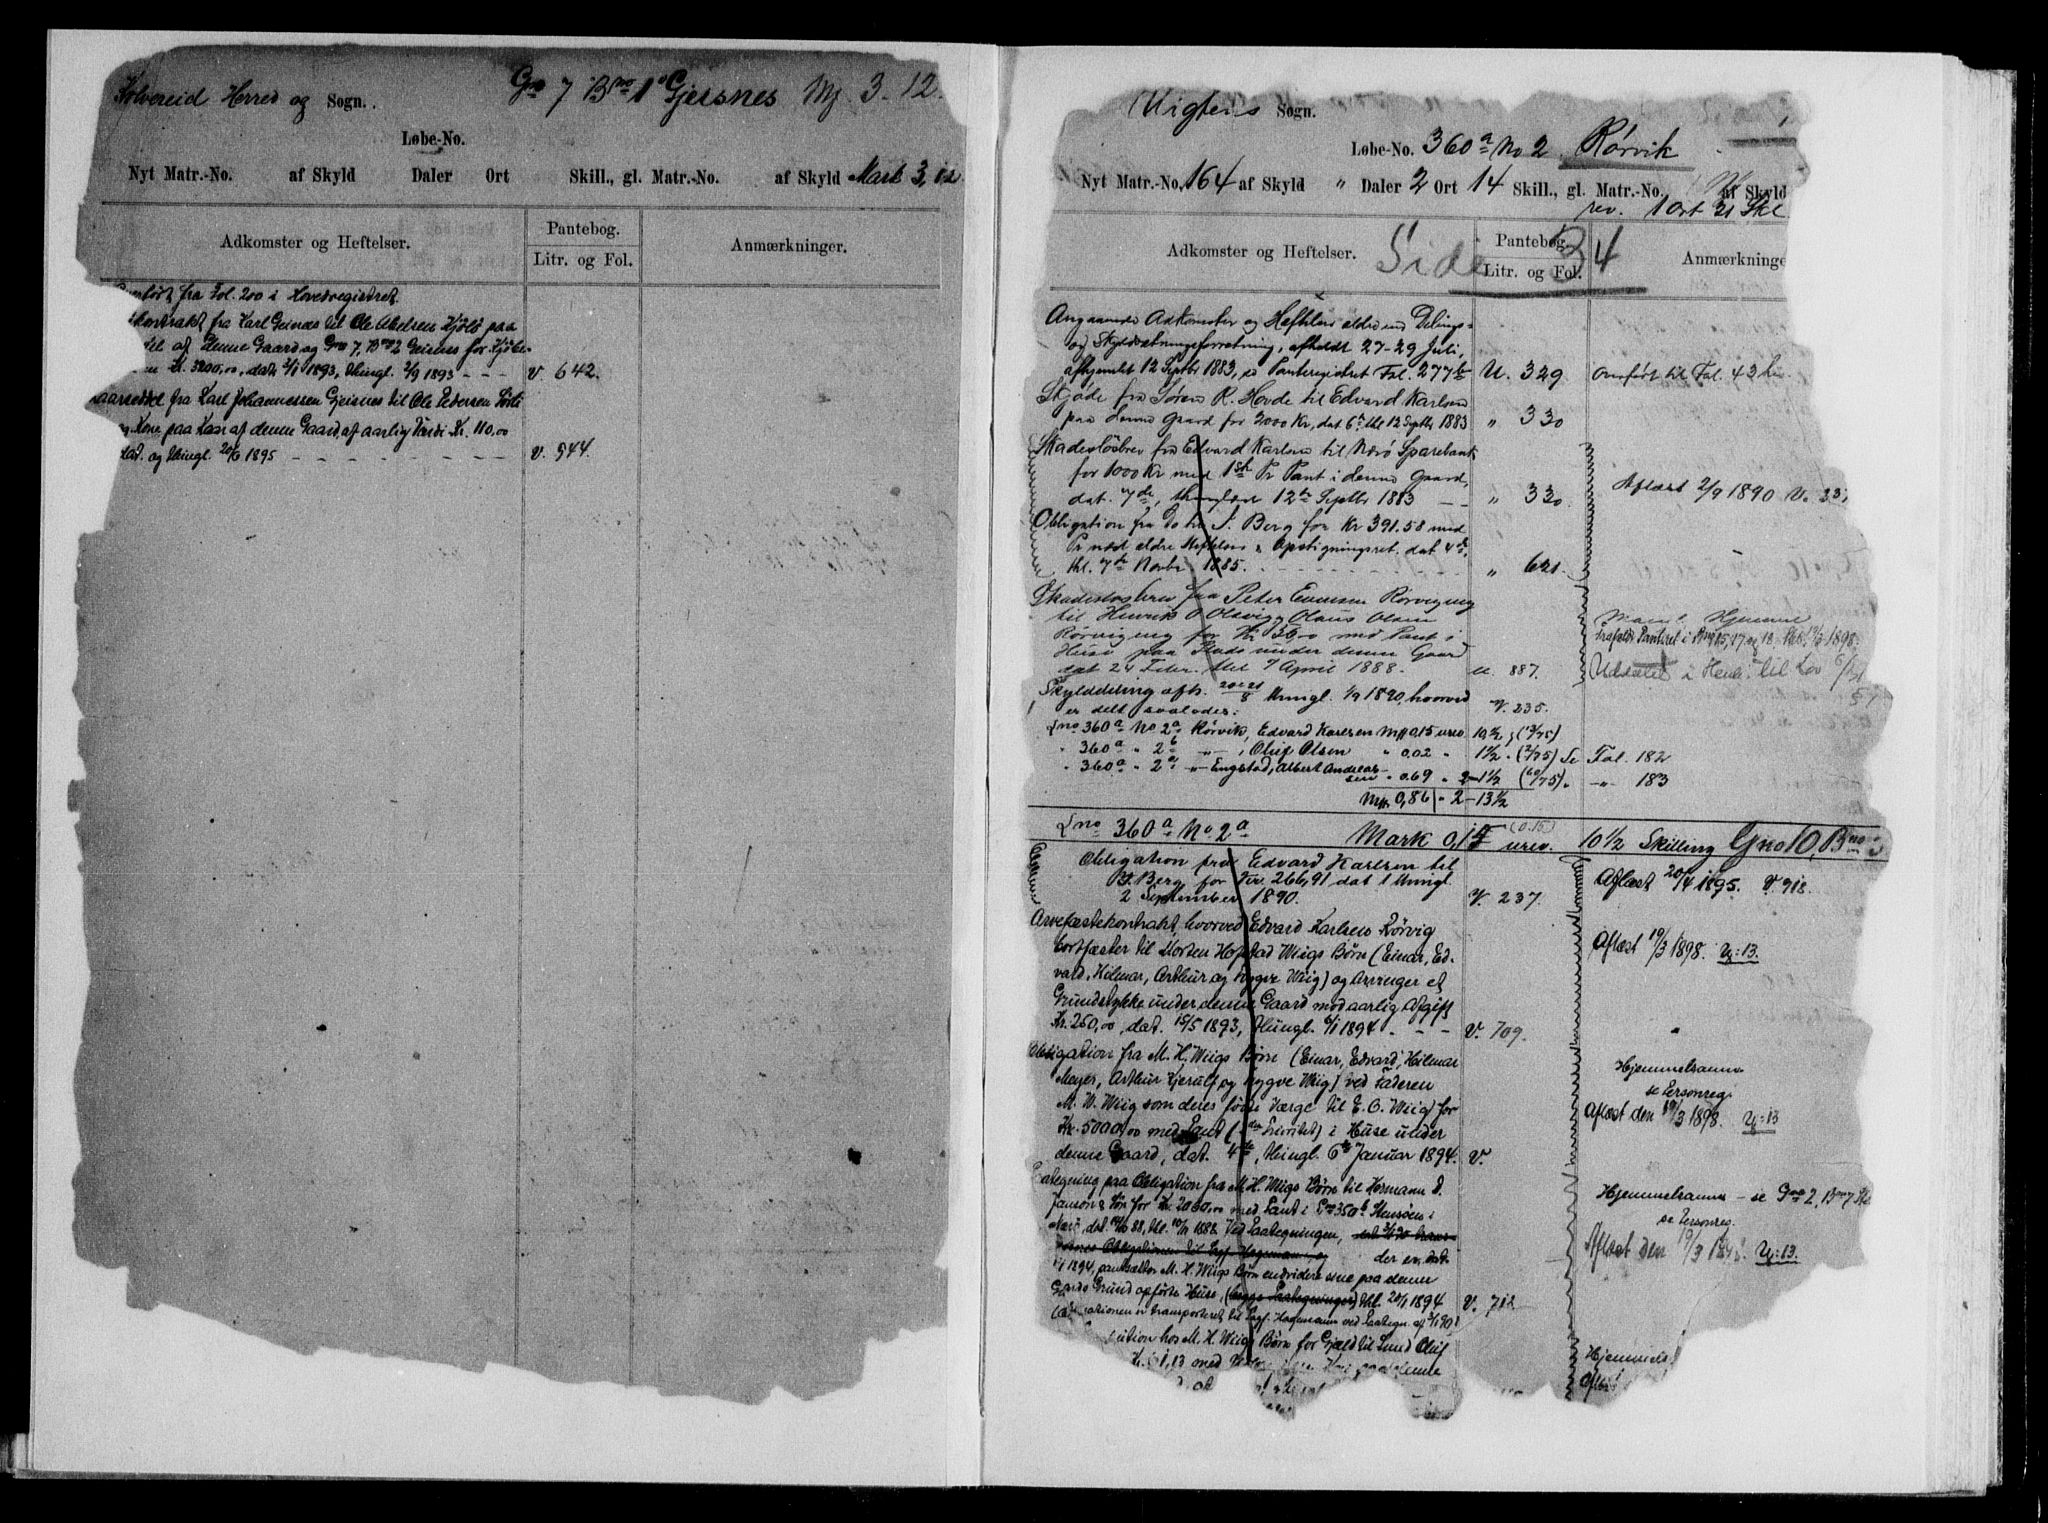 Kolvereid Herred og Sogn. Gno 7 Bno 1 Gjeisnes Mk 3.12.
Løbe-No.
Nyt Matr.-No. af Skyld Daler Ort Skill., gl. Matr.-No. af Skyld Mark 3,12
Adkomster og Heftelser. Pantebog. Litr. og Fol. Anmærkninger.
fra Fol. 200 i Hovedregistret.
kontrakt fra Karl Geisnæs til Ole Abelsen Kjølø paa
del af denne Gaard og Gno 7, Bno 2 Geisnes for Kjøbe-
Kr. 3200,00, dat. 2/1 1893, thingl. 2/9 1893 - - - V. 642.
fra Karl Johannessen Gjeisnes til Ole Pedersen
Kone paa Kaar af denne Gaard, af aarlig Værdi Kr. 110,00
dat. og thingl. 20/6 1895 - - - V. 944.
Vigtens Sogn.
Løbe-No. 360a No 2 Rørvik
Nyt Matr.-No. 164 af Skyld " Daler 2 Ort 14 Skill., gl. Matr.-No. af Skyld
rev. 1 Ort 21 Skl
Adkomster og Heftelser. Pantebog. Litr. og Fol. Anmærkninge
Side 34
Angaaende Adkomster og Heftelser ældre end Delings-
og Skyldsætningsforretning, afholdt 27-29 Juli,
afhjemlet 12 Septbr 1883, se Panteregistret Fol. 277b U. 329 Omført til Fol. 43
Skjøde fra Søren R. Hovde til Edvard Karlsen
paa denne Gaard for 2000 Kr, dat 6te thl 12 Septbr 1883 " 330
Skadesløsbrev fra Edvard Karlsen til Nærø Sparebank
for 1000 Kr med 1ste Pr Pant i denne Gaard,
dat. 7de, thinglæst 12te Septbr 1883 - - " 330. Aflæst 2/9 1890 V. 23
Obligation fra Do til J. Berg for Kr 391.58 med
Pr næst ældre Heftelser & Opstigningsret. dat 4de,
thl. 7de Novbr 1885. - - - " 621.
Skadesløsbrev fra Peter Rørvigeng
til Henrik O Olsvig Olaus Olsen
Rørvigeng for Kr 50,00 med Pant i
Huse paa Plads under denne Gaar
dat 24 Febr. thl 7 April 1888. U. 887.
Hjemmel
frafaldt Pantret i Bno 15, 17 og 18. 1898.
Udslettet i Henh. til Lov
Skylddeling afh. 20-21/8 thingl. 1/9 1890, hvorved
er delt saaledes: V. 235.
Lno 360a No 2a Rørvik, Edvard Karlsen Mk 0,15 urev. 10 1/2 ß (13/75)
" 360a " 2b " , Oluf Olsen " 0.02 " 1 1/2 " (2/75) Se Fol. 182
" 360a " 2c " Engstad, Albert Andreas-
sen " 0.69 " 2-1 1/2 (60/75) " " 183
Mk. 0,86 " 2-13 1/2
Lno 360a No. 2a Mark 0,15 (0.15) urev. 10 1/2 Skilling Gno 10, Bno
Obligation fra Edvard Karlsen til
J. Berg for Kr. 266,91 dat 1 thingl.
2 September 1890. V. 237. Aflæst 20/4 1895. V. 918.
Arvefæstekontrakt, hvorved Edvard Karlsen Rørvig
bortfæster til Morten Hopstad Wiigs Børn (Einar, Ed-
vard, Hilmar, Arthur og Trygve Wiig) og Arvinger et
Grundstykke under denne Gaard mod aarlig Afgift
Kr. 250,00, dat. 15/5 1893, thingl. 6/1 1894. - - - V. 709.
Aflæst 19/3 1898. Y: 13.
Obligation fra M. H. Wiigs Børn (Einar, Edvard, Hilmar
Meyer, Arthur Kjerulf og Trygve Wiig) ved Faderen
M. W. Wiig som deres fødte Værge til E. O. Wiig for
Kr. 5000,00 med Pant ( Prioritet) i Huse under
denne Gaard, dat. 4de, thingl. 6te Januar 1894. V.
Hjemmelsanm.
se Personreg.
Aflæst den 19/3 1898. Y: 13
Paategning paa Obligation fra M. H. Wiigs Børn til Hermann D.
Janson & Søn for Kr. 2000,00 med Pant i Lno 350b i
Nærø, dat 88, thl. 1888. Ved Paategningen,
der er dat.
1894, pantsætter M. H. Wiigs Børn endvidere sine paa denne
Gaards Grund opførte Huse, thl. 20/1 1894 V. 712
(Obligationen er transporteret til Sagf. Hagemann ved Paategn. af
Hjemmelsanm - se Gno 2, Bno 7
se Personreg.
Aflæst den 19/3 1898. Y: 13.
hos M. H. Wiigs Børn for Gjæld til Lund Oluf
Hjemmels
Aflæst